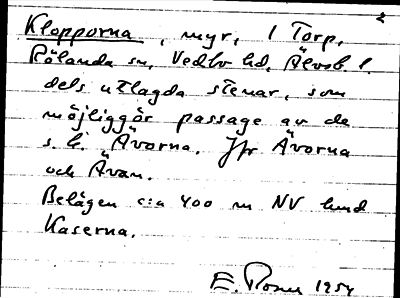 2
Klopporna, myr, 1 Torp,
Rölanda sn, Vedbo hd, Älvsb. l.
dels utlagda stenar, som
möjliggör passage av de
s.k. Ävorna. Jfr Ävorna
och Ävan.
Belägen c:a 400 m NV
Kaserna.
E. 1954